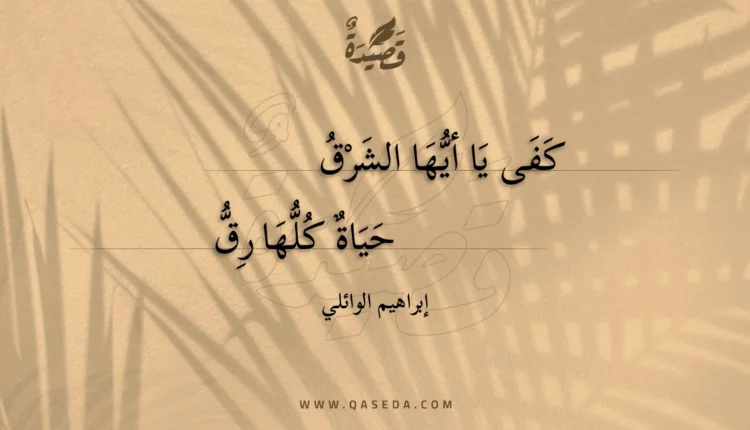 قَصِيْدَةٌ
كَفَى يَا أيُّهَا الشَرْقُ
حَيَاةٌ كُلُّهَا رِقُّ
إبراهيم الوائلي
WWW.QASEDA.COM